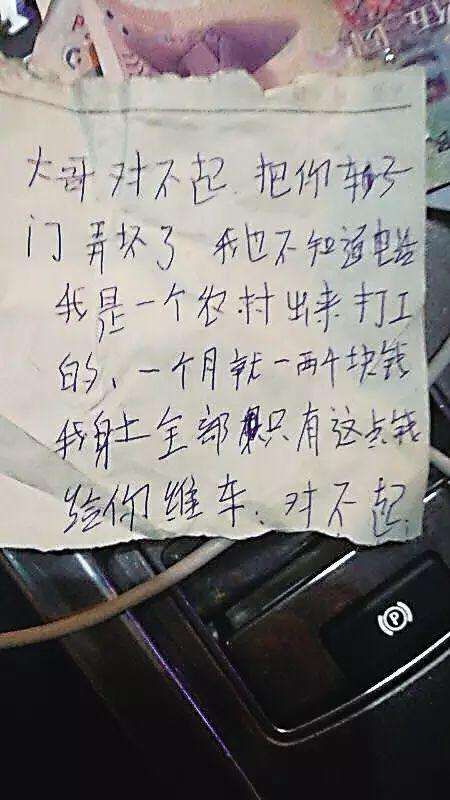 大哥对不起.把你车子
门弄坏了 我也不知道电话
我是一个农村出来打工
的、一个月就一两千块钱
我身上全部只有这点钱
给你维车、对不起.
P